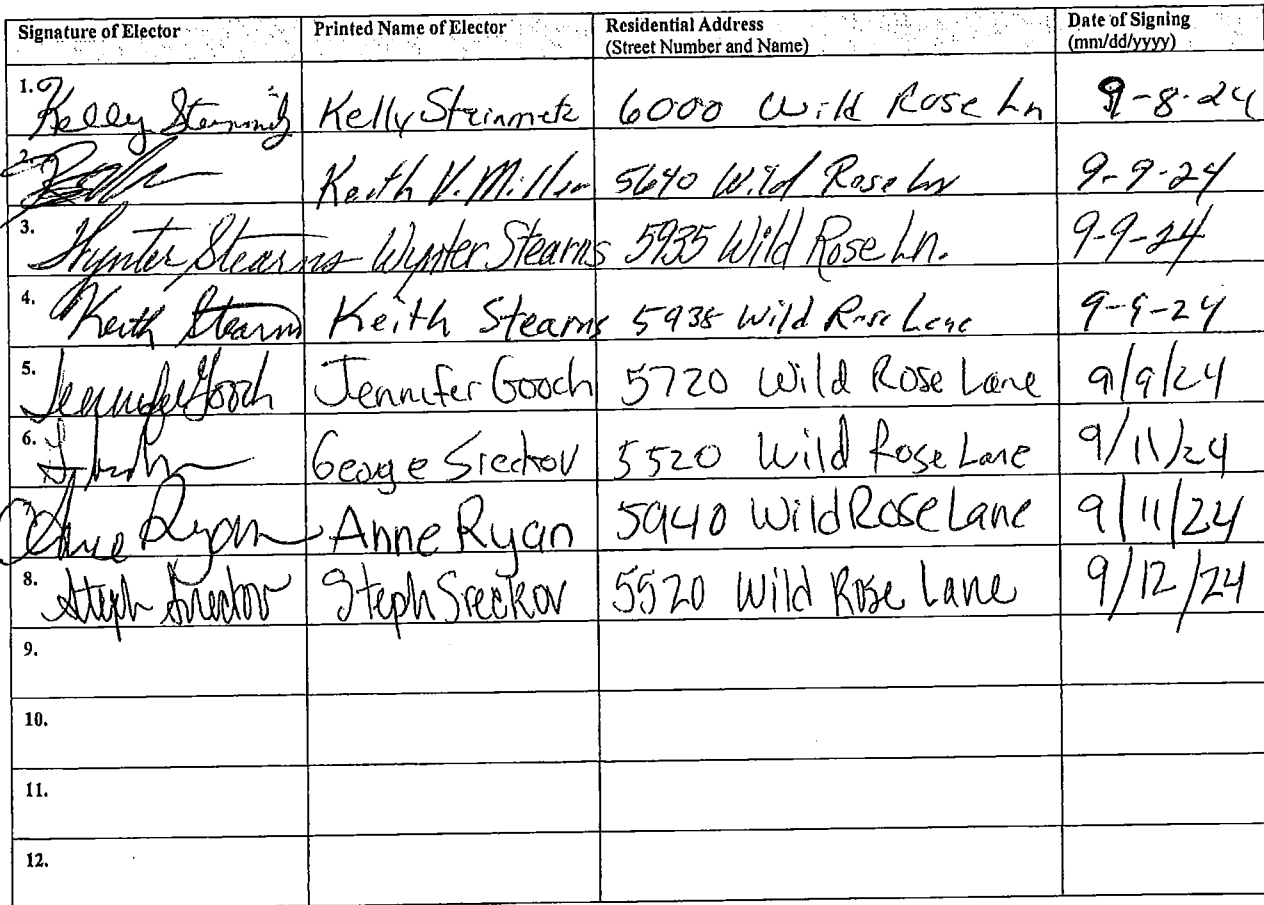 Signature of Elector Printed Name of Elector Residential Address (Street Number and Name) Date of Signing (mm/dd/yyyy)
1. Kelly Steinmetz Kelly Steinmetz 6000 Wild Rose Ln 9-8-24
2. Keith V. Miller 5640 Wild Rose Ln 9-9-24
3. Wynter Stearns Wynter Stearns 5935 Wild Rose Ln. 9-9-24
4. Keith Stearns Keith Stearns 5935 Wild Rose Lane 9-9-24
5. Jennifer Gooch Jennifer Gooch 5720 Wild Rose Lane 9/9/24
6. George Sreckov 5520 Wild Rose Lane 9/11/24
Anne Ryan Anne Ryan 5940 Wild Rose Lane 9/11/24
8. Steph Sreckov Steph Sreckov 5520 Wild Rose Lane 9/12/24
9.
10.
11.
12.